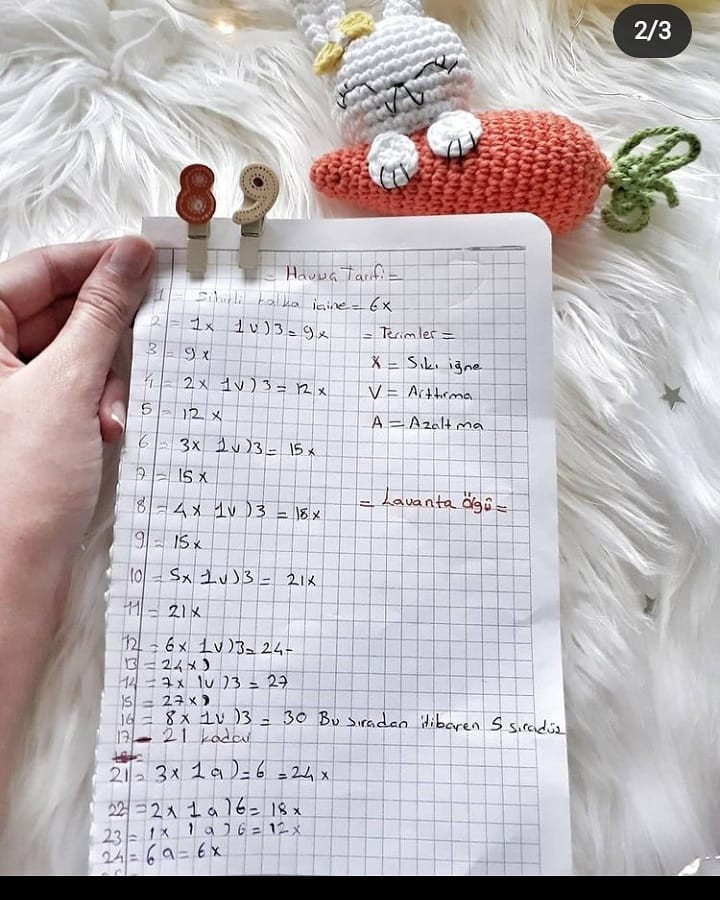 2/3
= Havva Tarifi =
1 = Sihirli halka içine = 6x
2 = 1x 1v)3 = 9x
= Terimler =
3 = 9x
X = Sıkı iğne
4 = 2x 1v)3 = 12x
V = Arttırma
5 = 12x
A = Azaltma
6 = 3x 1v)3 = 15x
7 = 15x
8 = 4x 1v)3 = 18x
= Lavanta Örgü =
9 = 15x
10 = 5x 1v)3 = 21x
11 = 21x
12 = 6x 1v)3 = 24-
13 = 24x)
14 = 7x 1v)3 = 27
15 = 27x)
16 = 8x 1v)3 = 30 Bu sıradan itibaren 5 sıradüz
17 - 21 kadar
21 = 3x 1a) = 6 = 24x
22 = 2x 1a)6 = 18x
23 = 1x 1a)6 = 12x
24 = 6a = 6x